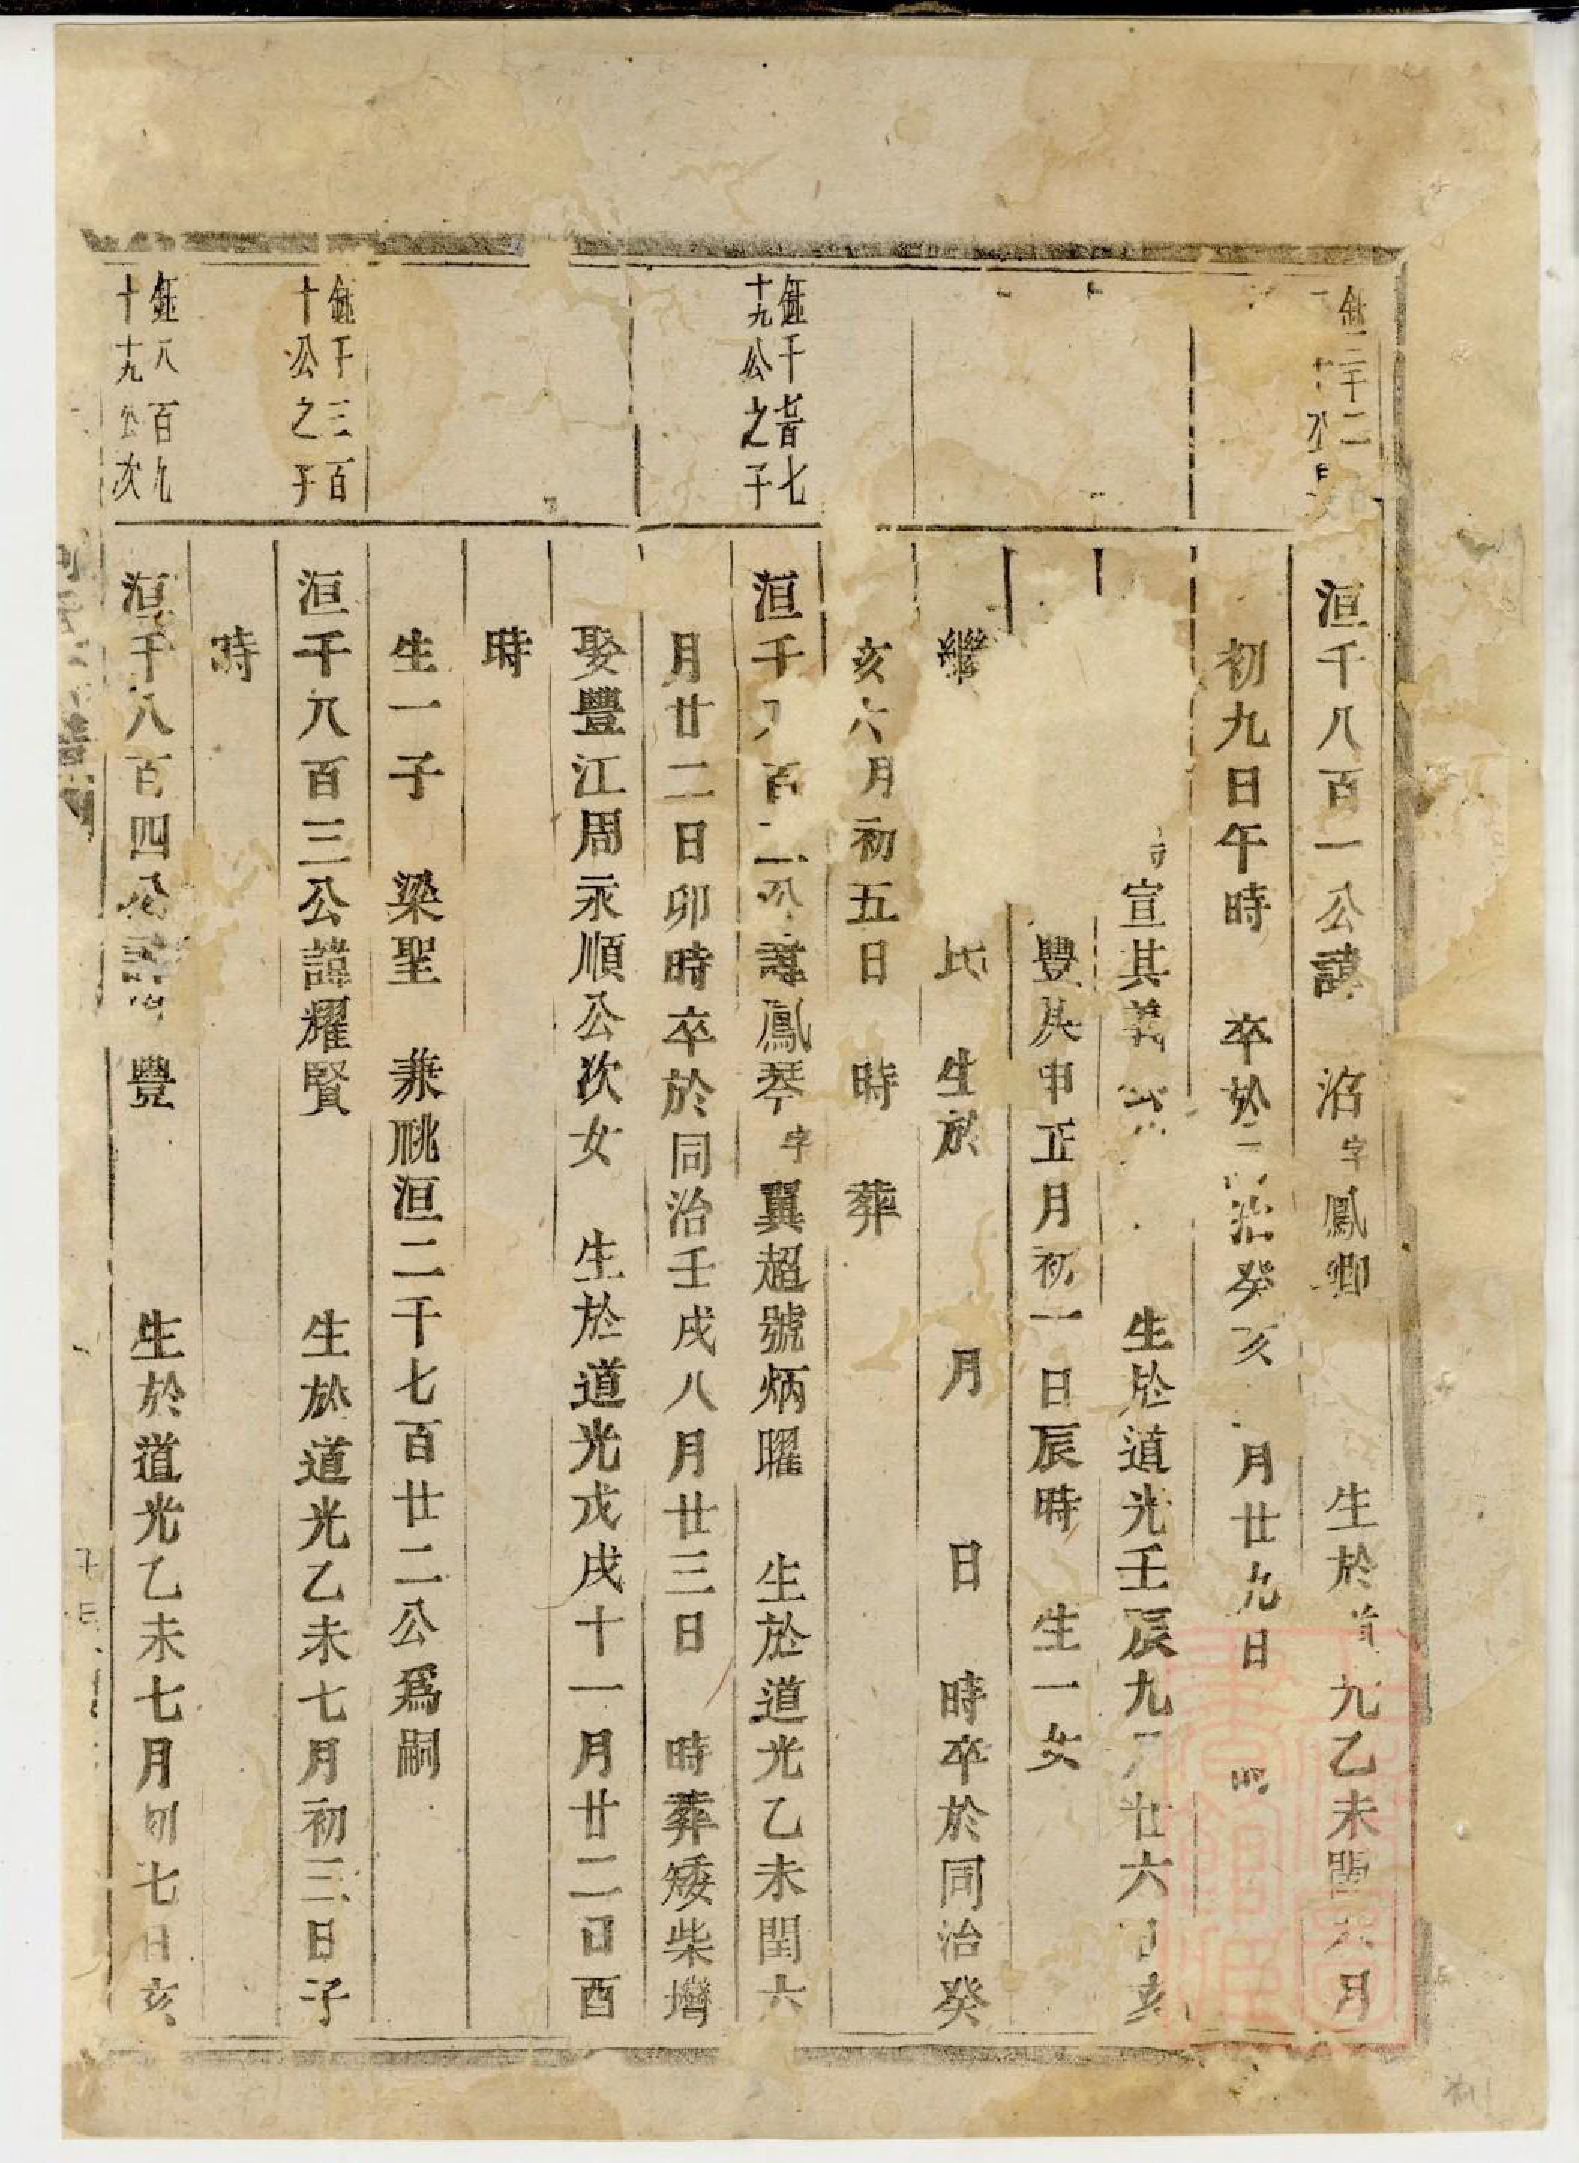 洹千八百一公諱　洺字鳳卿　生於　光乙未閏六月
初九日午時　卒於　治癸亥　月廿九日
宣其義公　生於道光壬辰九月廿六日亥
豐庚申正月初一日辰時　生一女
繼　氏　生於　月　日　時卒於同治癸
亥六月初五日　時　葬
鉦千七百七
十九公之子
洹千八百二公諱鳳琴字翼超號炳曜　生於道光乙未閏六
月廿二日卯時卒於同治壬戌八月廿三日　時葬矮柴壪
娶豐江周永順公次女　生於道光戊戌十一月廿二日酉
時
生一子　梁聖　兼祧洹二千七百廿二公爲嗣
鉦千三百
十公之子
洹千八百三公諱耀賢　生於道光乙未七月初三日子
時
鉦八百九
十九公次
洹千八百四公諱　豐　生於道光乙未七月初七日亥